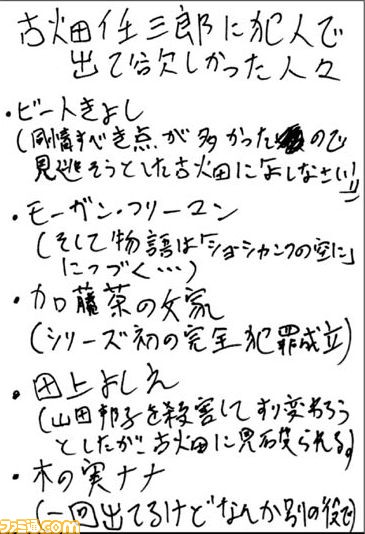 古畑任三郎に犯人で
出て欲しかった人々
・ビートきよし
(同情すべき点が多かったので
見逃そうとした古畑によしなさい!!)
・モーガン・フリーマン
(そして物語は「ショーシャンクの空に」
につづく…)
・加藤茶の女家
(シリーズ初の完全犯罪成立)
・田上よしえ
(山田邦子を殺害してすり変わろう
としたが古畑に見破られる。)
・木の実ナナ
(一回出てるけどなんか別の役で)
ファミ通.com